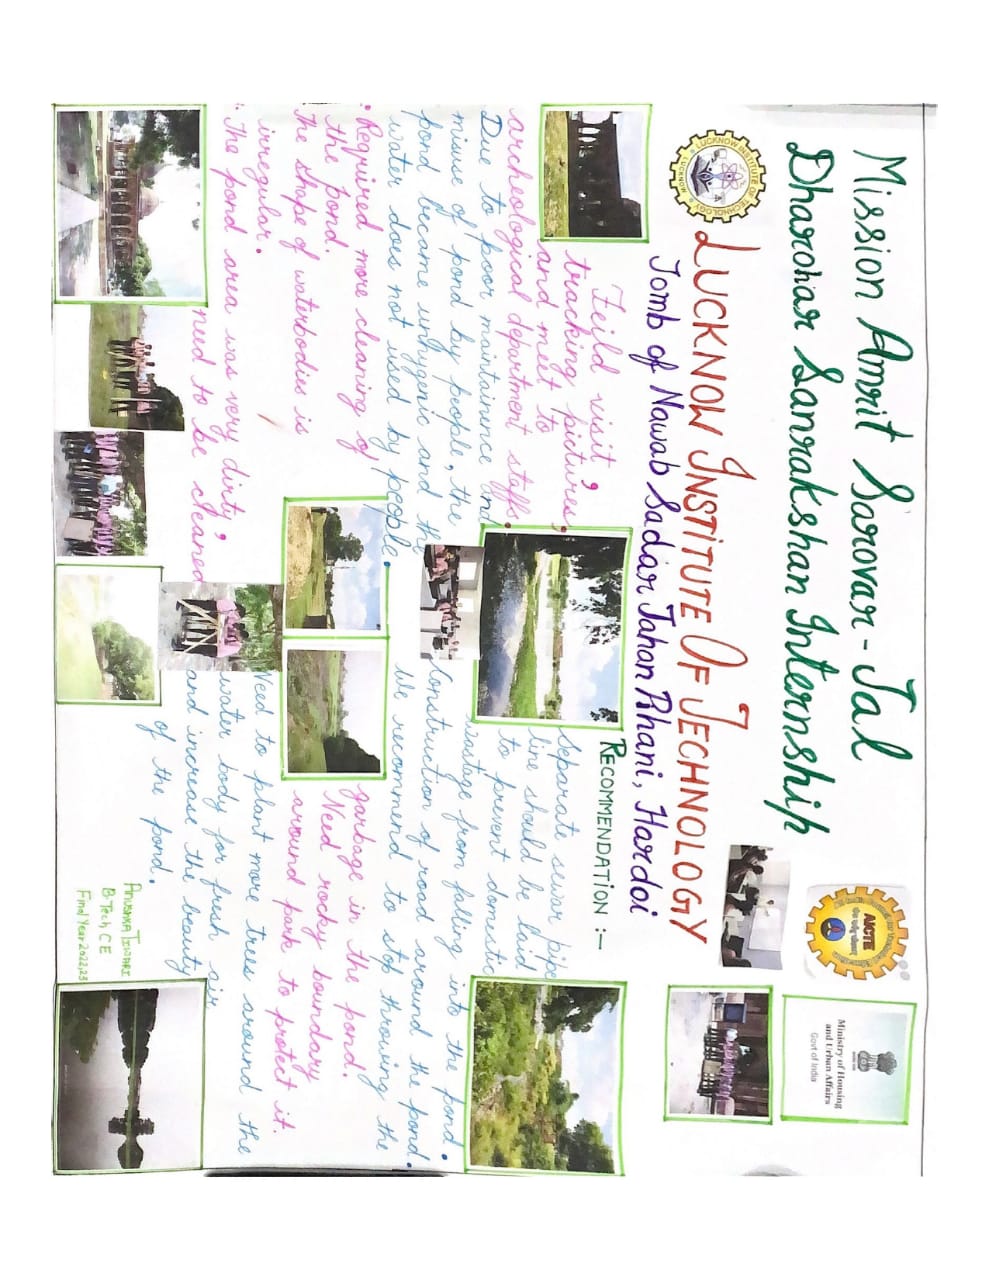 Mission Amrit Sarovar-Jal
Dharohar Sanrakshan Internship
LUCKNOW INSTITUTE OF TECHNOLOGY
LUCKNOW
AICTE
Ministry of Housing
and Urban Affairs
Govt of India
LUCKNOW INSTITUTE OF TECHNOLOGY
Tomb of Nawab Sadar Jahan Pihani, Hardoi
Feild visit,
tracking pictures,
and meet to
archeological department staffs.
Due to poor maintainence and
misuse of pond by people, the
pond became unhygenic and the
water does not used by people.
• Required more cleaning of
the pond.
• The shape of waterbodies is
irregular.
• The pond area was very dirty,
need to be cleaned
RECOMMENDATION :-
Separate sewar pipe
line should be laid
to prevent domestic
wastage from falling into the pond.
Construction of road around the pond.
We recommend to stop throwing the
garbage in the pond.
Need rocky boundary
around park to protect it.
Need to plant more trees around the
water body for fresh air
and increase the beauty
of the pond.
ANUSHKA TIWARI
B.Tech CE
Final Year 2022,23